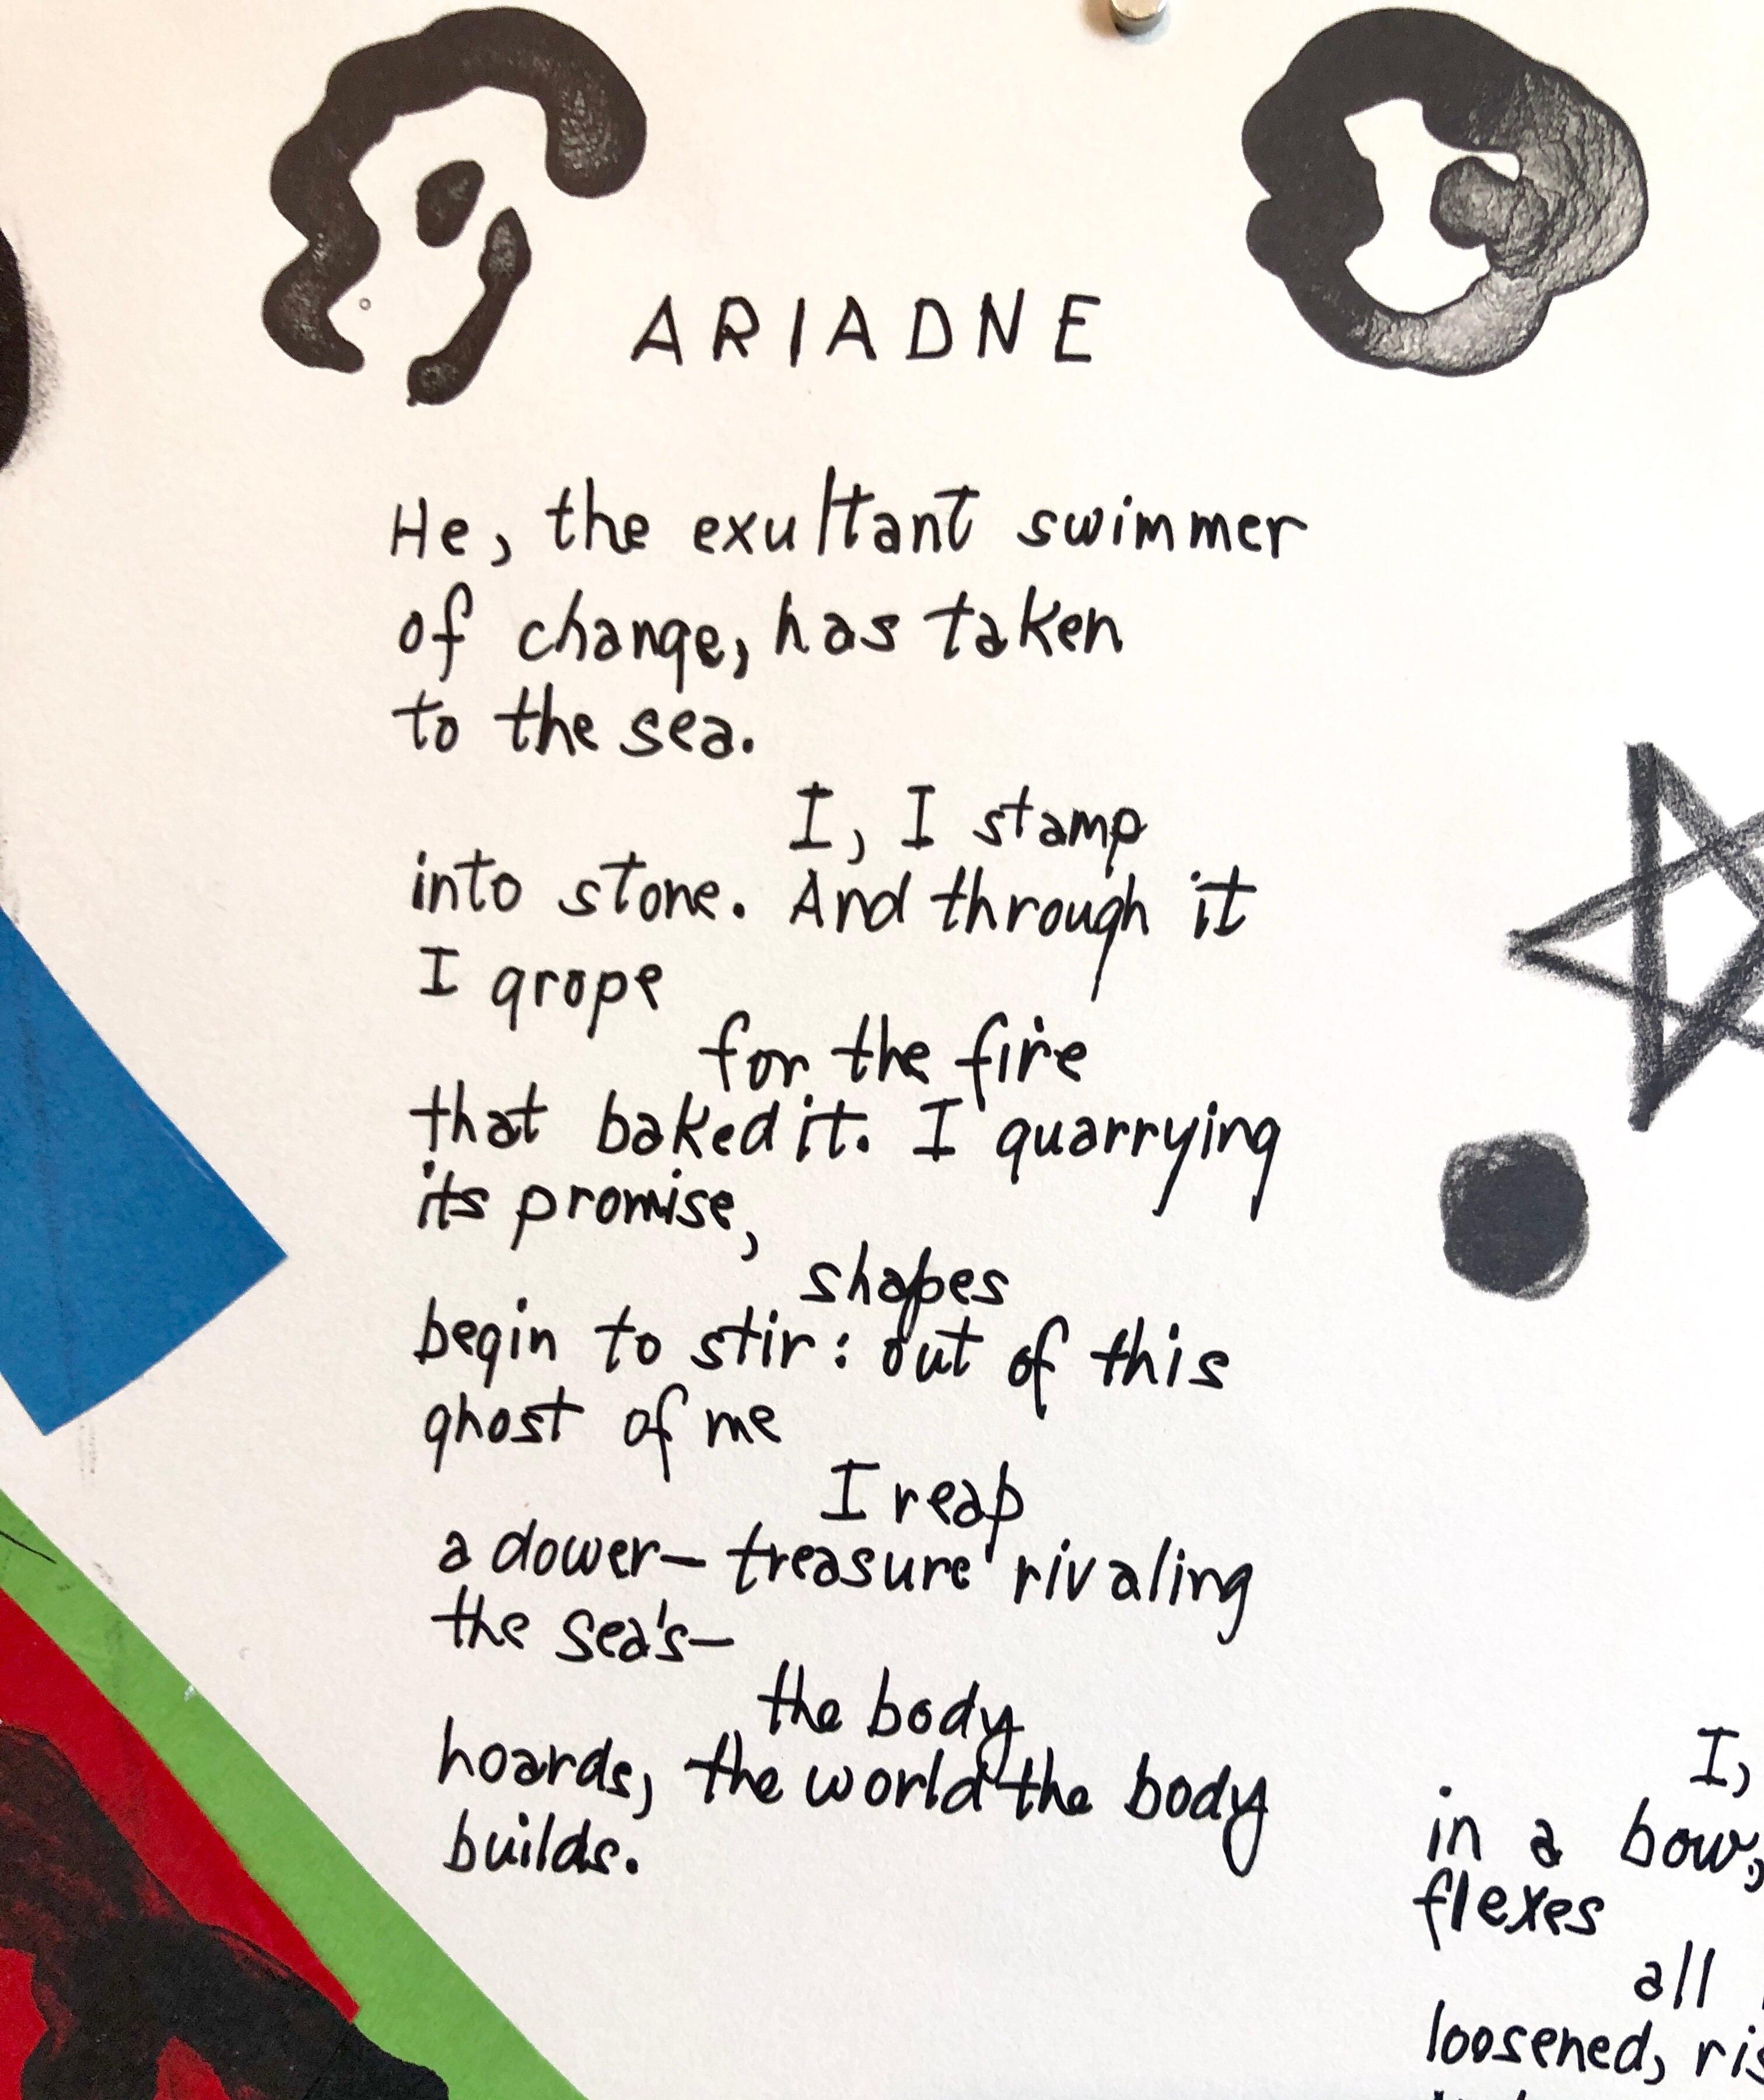 ARIADNE
He, the exultant swimmer
of change, has taken
to the sea.
I, I stamp
into stone. And through it
I grope
for the fire
that baked it. I quarrying
its promise,
shapes
begin to stir: out of this
ghost of me
I reap
a dower— treasure rivaling
the sea's—
the body
hoards, the world the body
builds.
I,
in a bow,
flexes
all
loosened,